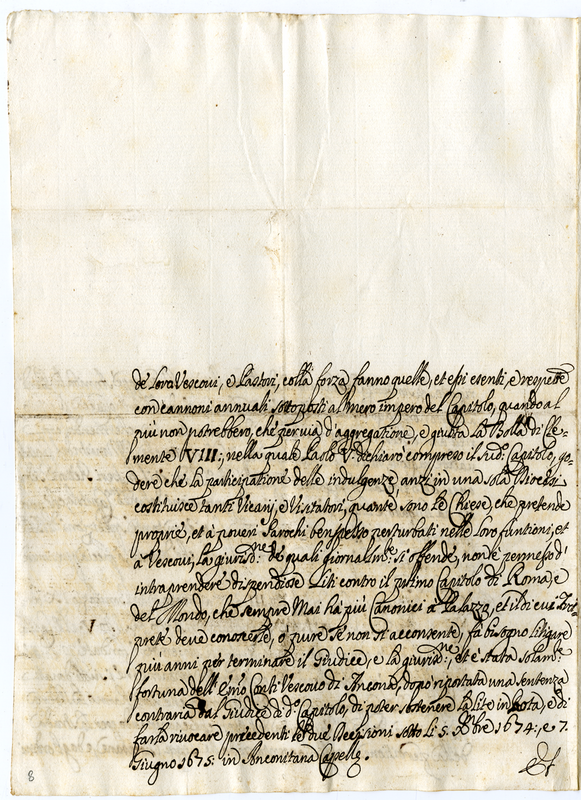 de' loro Vescovi, e Pastori, colla forza fanno quelle, et essi esenti, e respettᵉ
con cannoni annuali sottoposti al mero impero del Capitolo, quando al
più non potrebbero, che per via d'aggregatione, e giusta La Bolla di Cle-
mente VIII:, nella quale Paolo V: dichiarò compreso il sudº: Capitolo, go-
dere che la participatione delle indulgenze anzi in una sola Diocesi
costituisce tanti Vicarij, e Visitatori, quante sono le Chiese, che pretende
proprie, et à poveri Parochi ben spesso perturbati nelle loro funtioni, et
a Vescovi, la giurisdⁿᵉ: de quali giornalmᵉ: si offende, non è permesso d'
intraprendere dispendiose Liti contro il primo Capitolo di Roma, e
del Mondo, che sempre Mai hà più Canonici à Palazzo, et il di cui
prete deve conoscerle, ò pure se non si acconsente, fà bisogno litigare
più anni per terminare il Giudice, e la giurisdⁿᵉ:, et è stata solamᵉ:
fortuna dell'Emo Conti Vescovo di Ancona, dopo riportata una sentenza
contraria dal Giudice di dº: Capitolo, di poter sostenere la Lite in Rota, e di
farla rivocare precedenti le due Decisioni sotto li 5. Xbre 1674:, e 7.
Giugno 1675: in Anconitana Capellę.
8